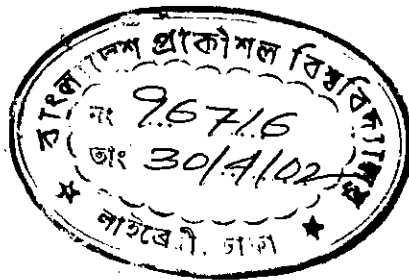 বাংলাদেশ প্রকৌশল বিশ্ববিদ্যালয়
নং 96716
তাং 30/4/02
★ লাইব্রেরী, ঢাকা ★